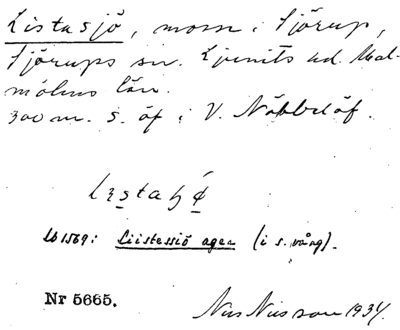 Listasjö, mosse i Sjörup,
Sjörups sn. Ljunits hd. Mal-
möhus län.
300 m. S. öf i V. Nöbbelöf.
Lb 1569: Liistessiö ager (i s. vång).
Nr 5665.
Nils Nilsson 1934.